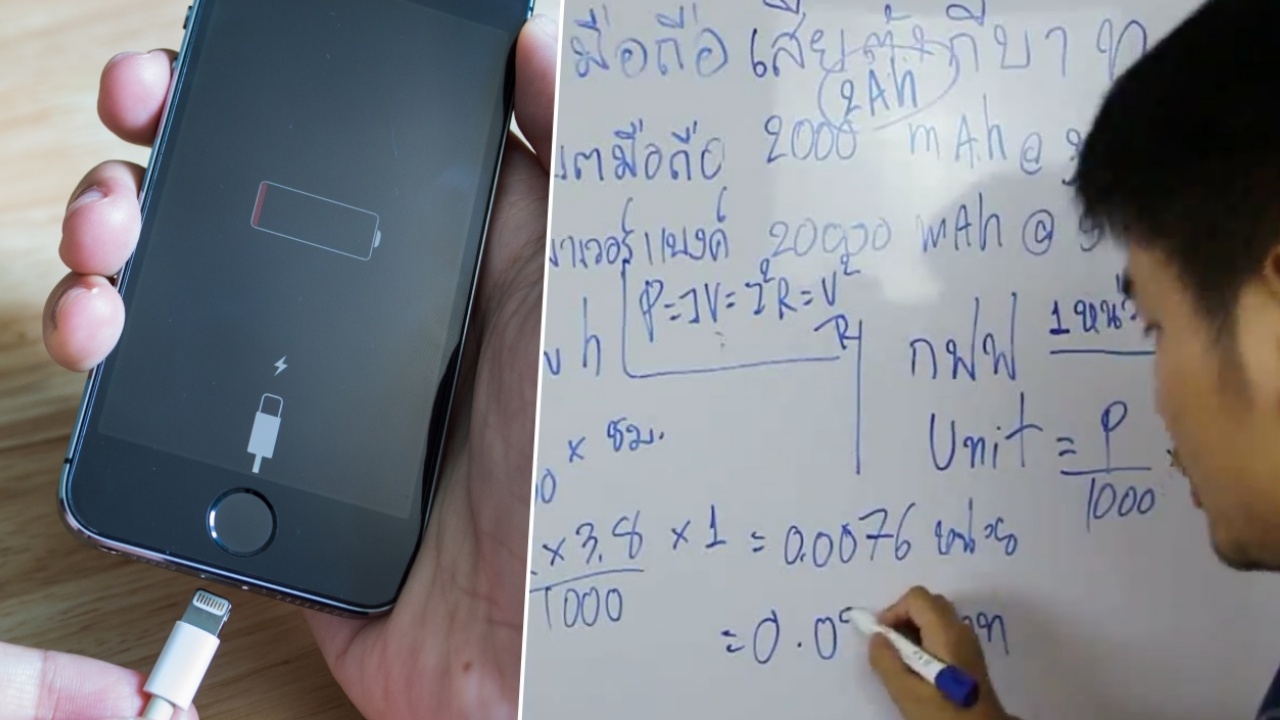 มือถือ เสียตังกี่บาท
2Ah
แบตมือถือ 2000 mAh @
พาวเวอร์แบงค์ 20000 mAh @
h P=IV=I²R=V²/R กฟฟ 1 หน่วย
Unit = P/1000 ×
× ชม.
× 3.8 × 1 = 0.0076 หน่วย
1000
= 0.0